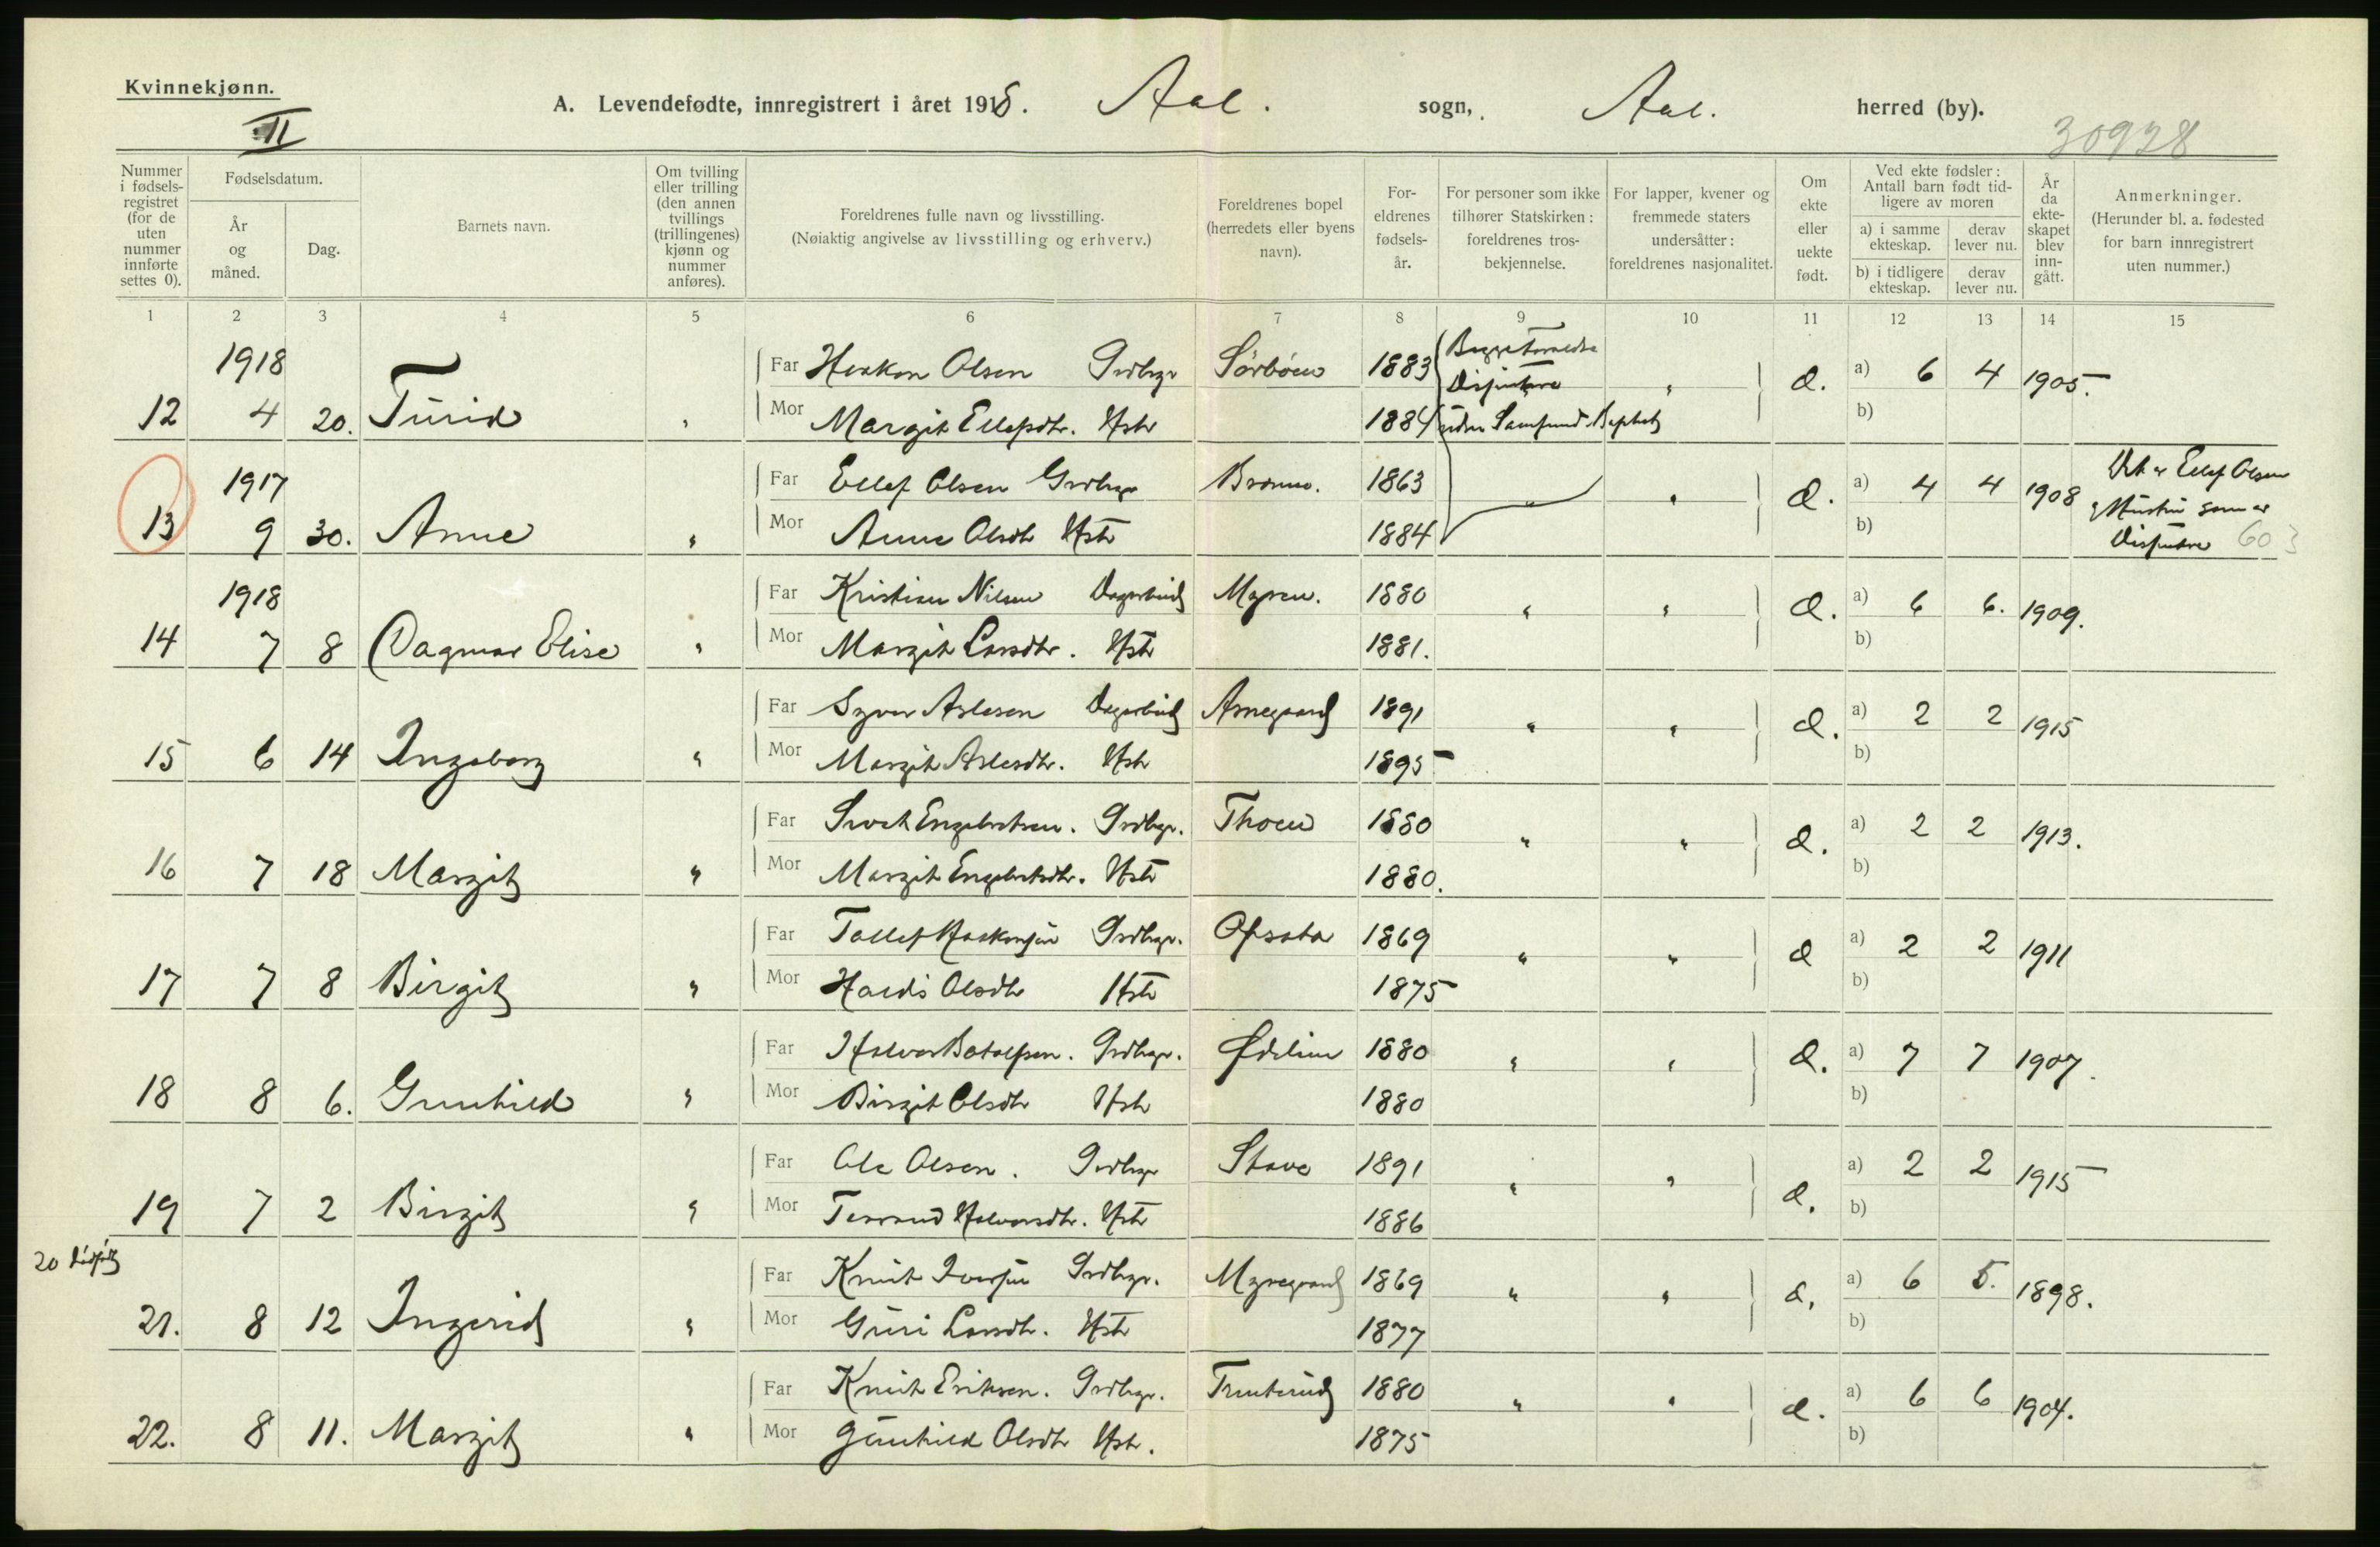 Kvinnekjønn.
II
A. Levendefødte, innregistrert i året 1918. Aal. sogn, Aal. herred (by).
30928
Nummer i fødsels-registret (for de uten nummer innførte settes 0).
Fødselsdatum.
År og måned.
Dag.
Barnets navn.
Om tvilling eller trilling (den annen tvillings (trillingenes) kjønn og nummer anføres).
Foreldrenes fulle navn og livsstilling.
(Nøiaktig angivelse av livsstilling og erhverv.)
Foreldrenes bopel (herredets eller byens navn).
For-eldrenes fødsels-år.
For personer som ikke tilhører Statskirken: foreldrenes tros-bekjennelse.
For lapper, kvener og fremmede staters undersåtter: foreldrenes nasjonalitet.
Om ekte eller uekte født.
Ved ekte fødsler: Antall barn født tid-ligere av moren
a) i samme ekteskap.
derav lever nu.
b) i tidligere ekteskap.
derav lever nu.
År da ekte-skapet blev inn-gått.
Anmerkninger.
(Herunder bl. a. fødested for barn innregistrert uten nummer.)
1 2 3 4 5 6 7 8 9 10 11 12 13 14 15
1918 Far Haakon Olsen Grdbr. Sørbøen 1883 Begge Forældre Dissentere " Æ. a) 6 4 1905.
12 4 20. Turid " Mor Margit Ellefsdtr. Hstr 1884 uden Samfund b)
1917 Far Ellef Olsen Grdbr. 1863 " " Æ. a) 4 4 1908 Det er Ellef Olsen
13 9 30. Anne " Mor Anne Olsdtr Hstr 1884 b) Hustru som er Dissenter 603
1918 Far Kristian Nilsen Dagarbeid Myren. 1880 " " Æ. a) 6 6. 1909.
14 7 8 Dagmar Elise " Mor Margit Larsdtr. Hstr 1881. b)
Far Syver Aslesen Dagarbeid Arnegaard 1891 " " Æ. a) 2 2 1915
15 6 14 Ingeborg " Mor Margit Aslesdtr. Hstr 1895 b)
Far Engebretsen. Grdbr. Thoen 1880 " " Æ. a) 2 2 1913.
16 7 18 Margit " Mor Margit Engebretsdtr. Hstr 1880. b)
Far Tollef Haakonsen Grdbr. Opsata 1869 " " Æ a) 2 2 1911
17 7 8 Birgit " Mor Haldis Olsdtr Hstr 1875 b)
Far Halvor Botolfsen. Grdbr. Ødelien 1880 " " Æ. a) 7 7 1907.
18 8 6. Gunhild " Mor Birgit Olsdtr Hstr 1880 b)
Far Ole Olsen. Grdbr Stave 1891 " " Æ. a) 2 2 1915
19 7 2 Birgit " Mor Halvorsdtr. Hstr 1886 b)
20 dødfødt
Far Knut Iversen Grdbr. Myregaard 1869 " " Æ. a) 6 5. 1898.
21. 8 12 Ingerid " Mor Guri Larsdtr. Hstr 1877 b)
Far Knut Eriksen. Grdbr. Trinterud 1880 " " Æ. a) 6 6 1904.
22. 8 11. Margit " Mor Gunhild Olsdtr Hstr. 1875 b)